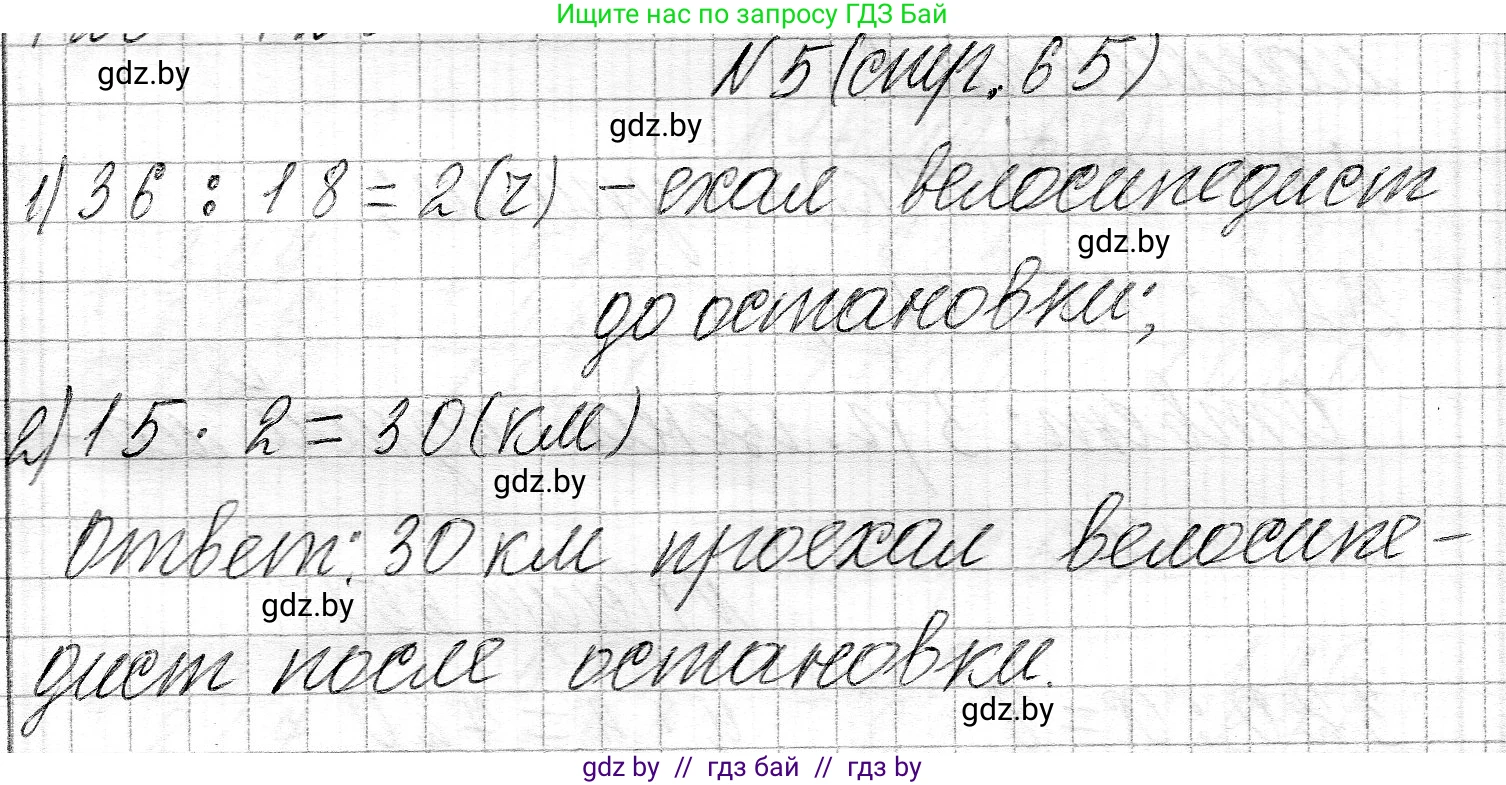 Ищите нас по запросу ГДЗ Бай
gdz.by
N 5 (стр. 65)
gdz.by
1) 36 : 18 = 2 (ч) – ехал велосипедист
gdz.by
до остановки;
2) 15 · 2 = 30 (км)
gdz.by
Ответ: 30 км проехал велосипе-
gdz.by
дист после остановки.
gdz.by
gdz by // гдз бай // гдз by